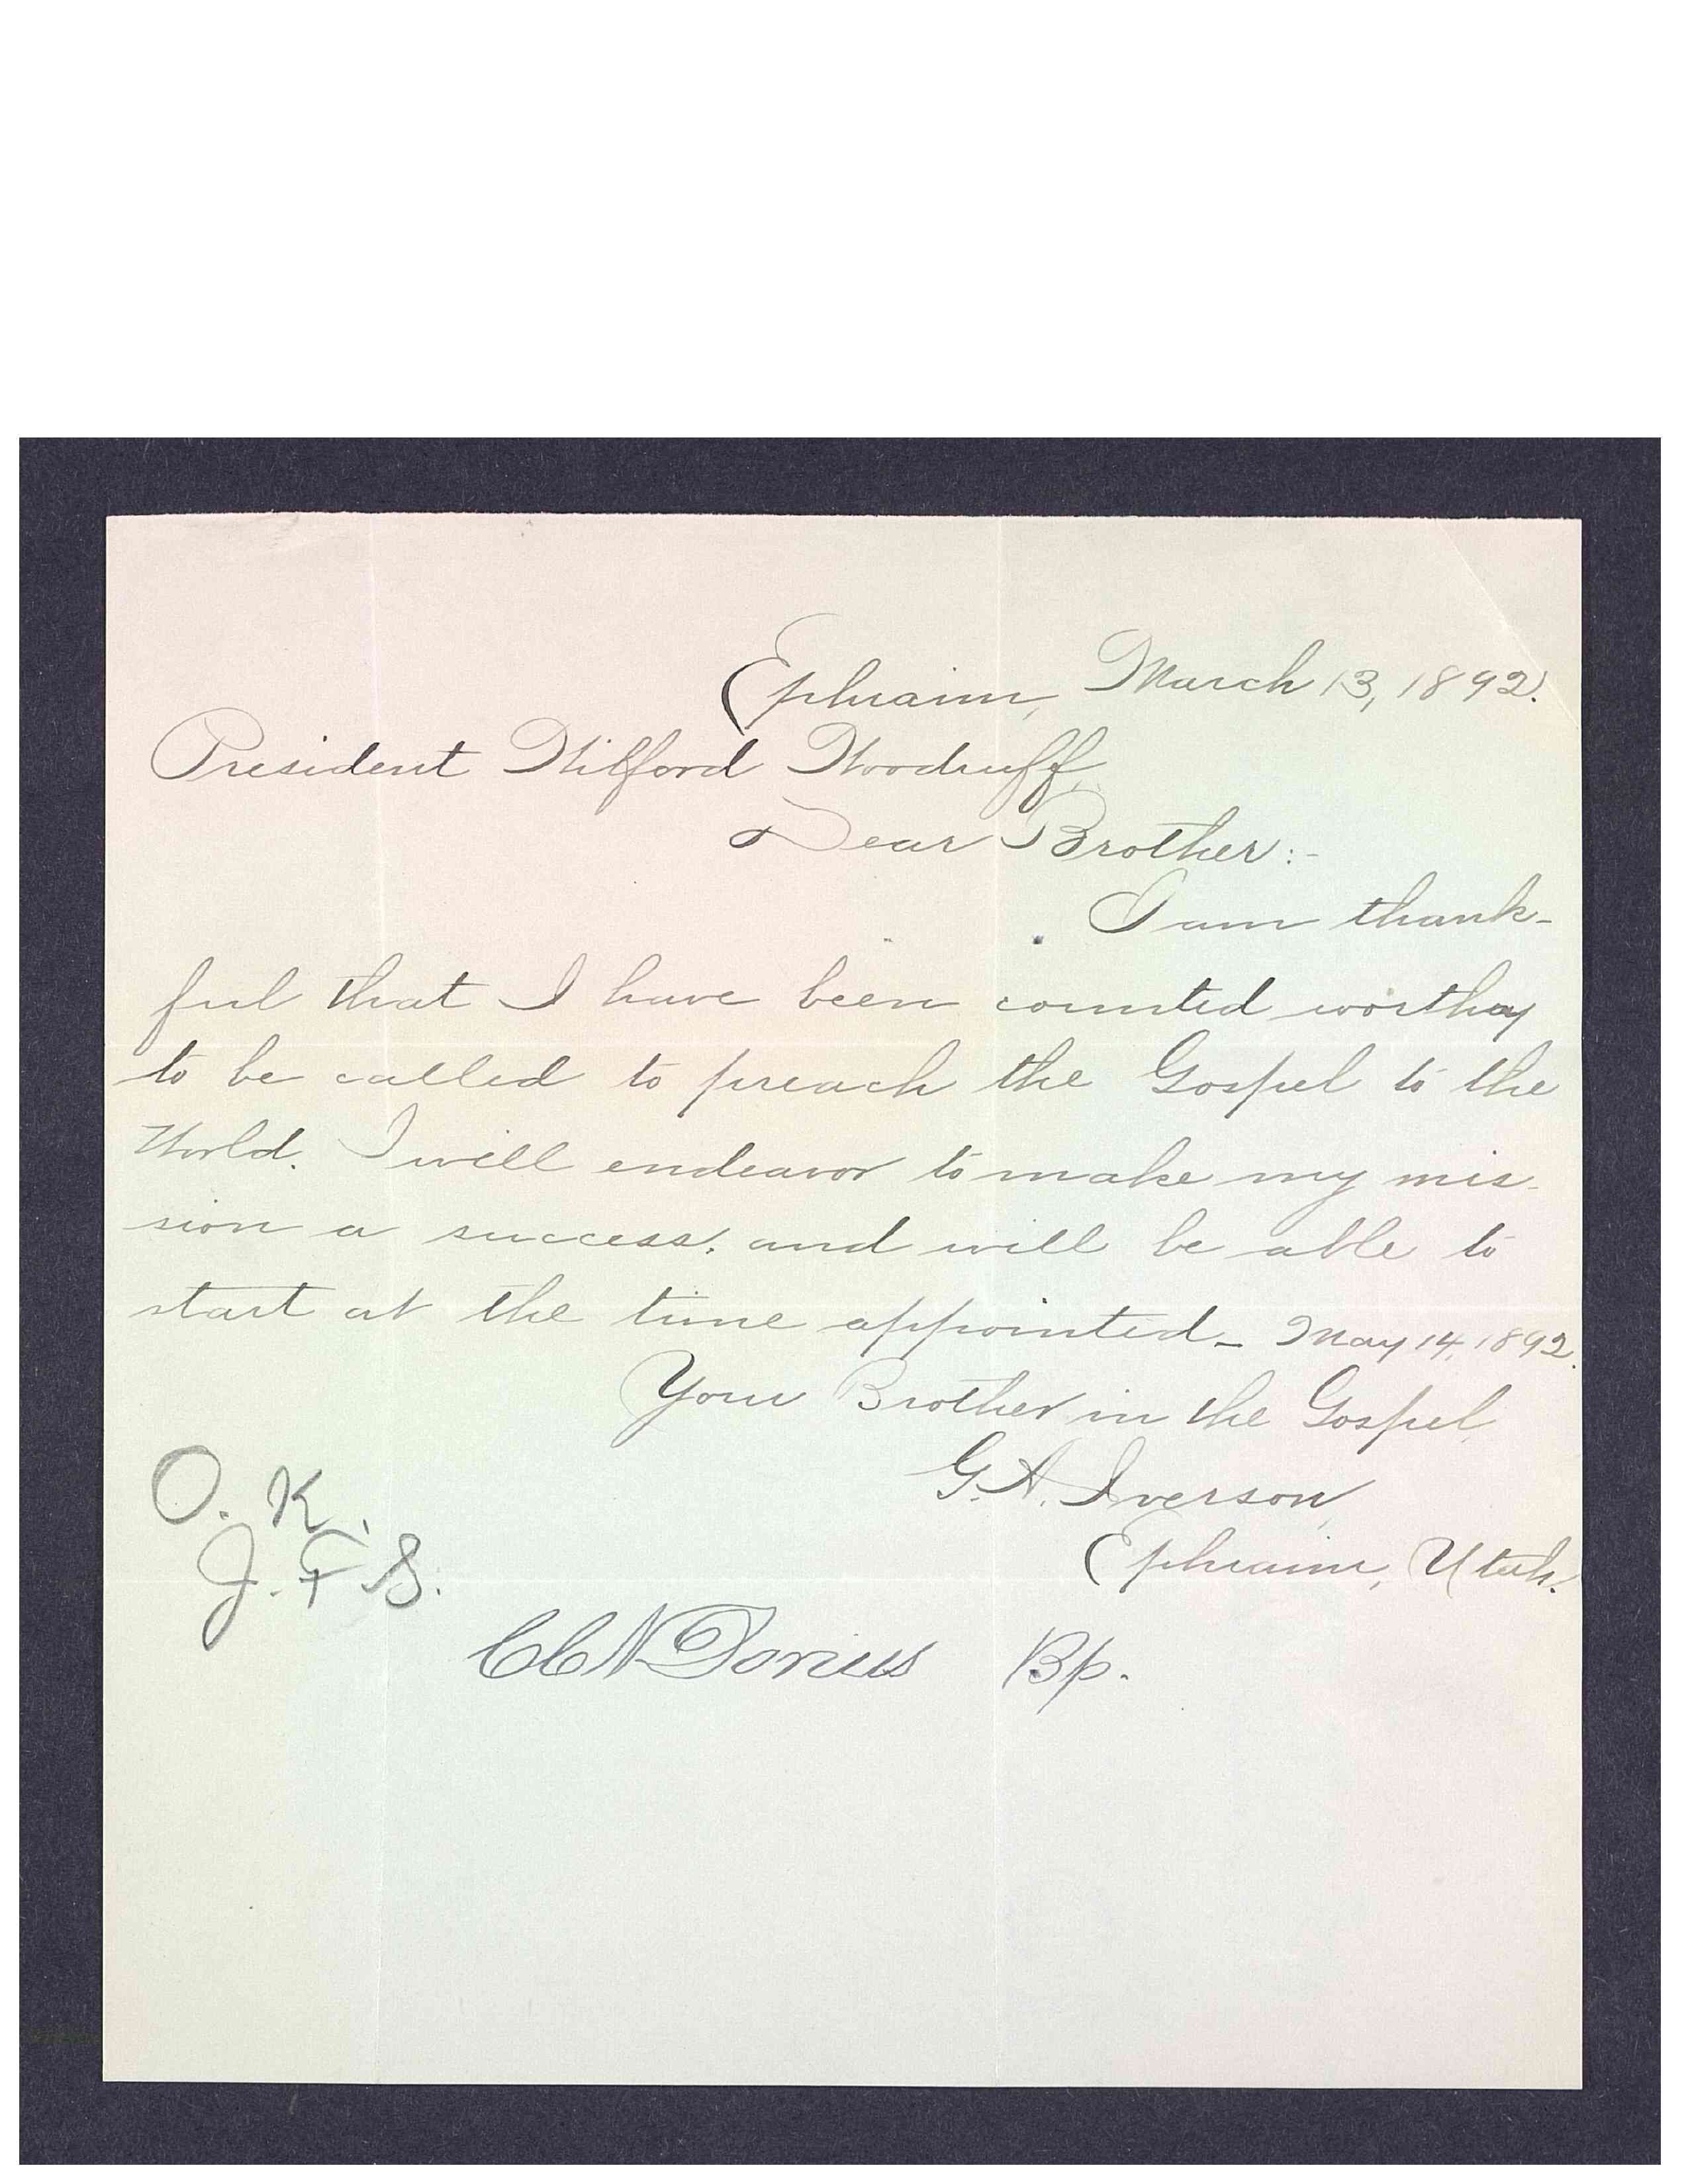 Ephraim, March 13, 1892.
President Wilford Woodruff,
Dear Brother:-
I am thank-
ful that I have been counted worthy
to be called to preach the Gospel to the
World. I will endeavor to make my mis-
sion a success, and will be able to
start at the time appointed- May 14, 1892.
Your Brother in the Gospel,
G. A. Iverson,
Ephraim, Utah.
O. K.
J. F. S.
C C N Dorius Bp.